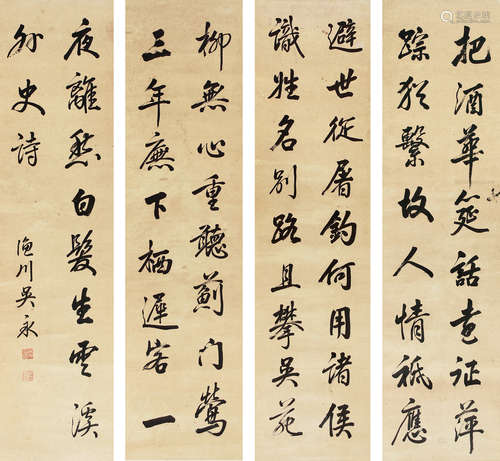 把酒華筵話遠征萍
踪猶繫故人情祇應
避世從屠釣何用諸侯
識姓名別路且攀吳苑
柳無心重聽薊門鶯
三年廡下栖遲客一
夜離愁白髮生雲溪
外史詩
漁川吳永